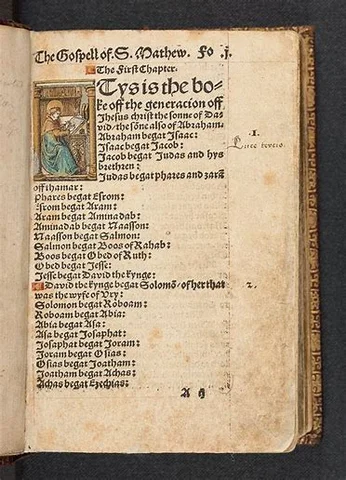 The Gospell of. S. Mathew. Fo. j.
The First Chapter.
Tys is the bo=
ke off the generacion off
Jhesus christ the sonne of Da
vid/the sõne also of Abraham.
Abraham begat Isaac:
Isaac begat Jacob:
Jacob begat Judas and hys
brethren:
Judas begat phares and zarã
off thamar:
phares begat Esrom:
Esrom begat Aram:
Aram begat Aminadab:
Aminadab begat Naasson:
Naasson begat Salmon:
Salmon begat Boos of Rahab:
Boos begat Obed of Ruth:
Obed begat Jesse:
Jesse begat David the kynge:
David the kynge begat Solomõ/of her that
was the wyfe of Vry:
Solomon begat Roboam:
Roboam begat Abia:
Abia begat Asa:
Asa begat Josaphat:
Josaphat begat Joram:
Joram begat Osias:
Osias begat Joatham:
Joatham begat Achas:
Achas begat Ezechias:
A ij
.1.
Luce tercio.
2.